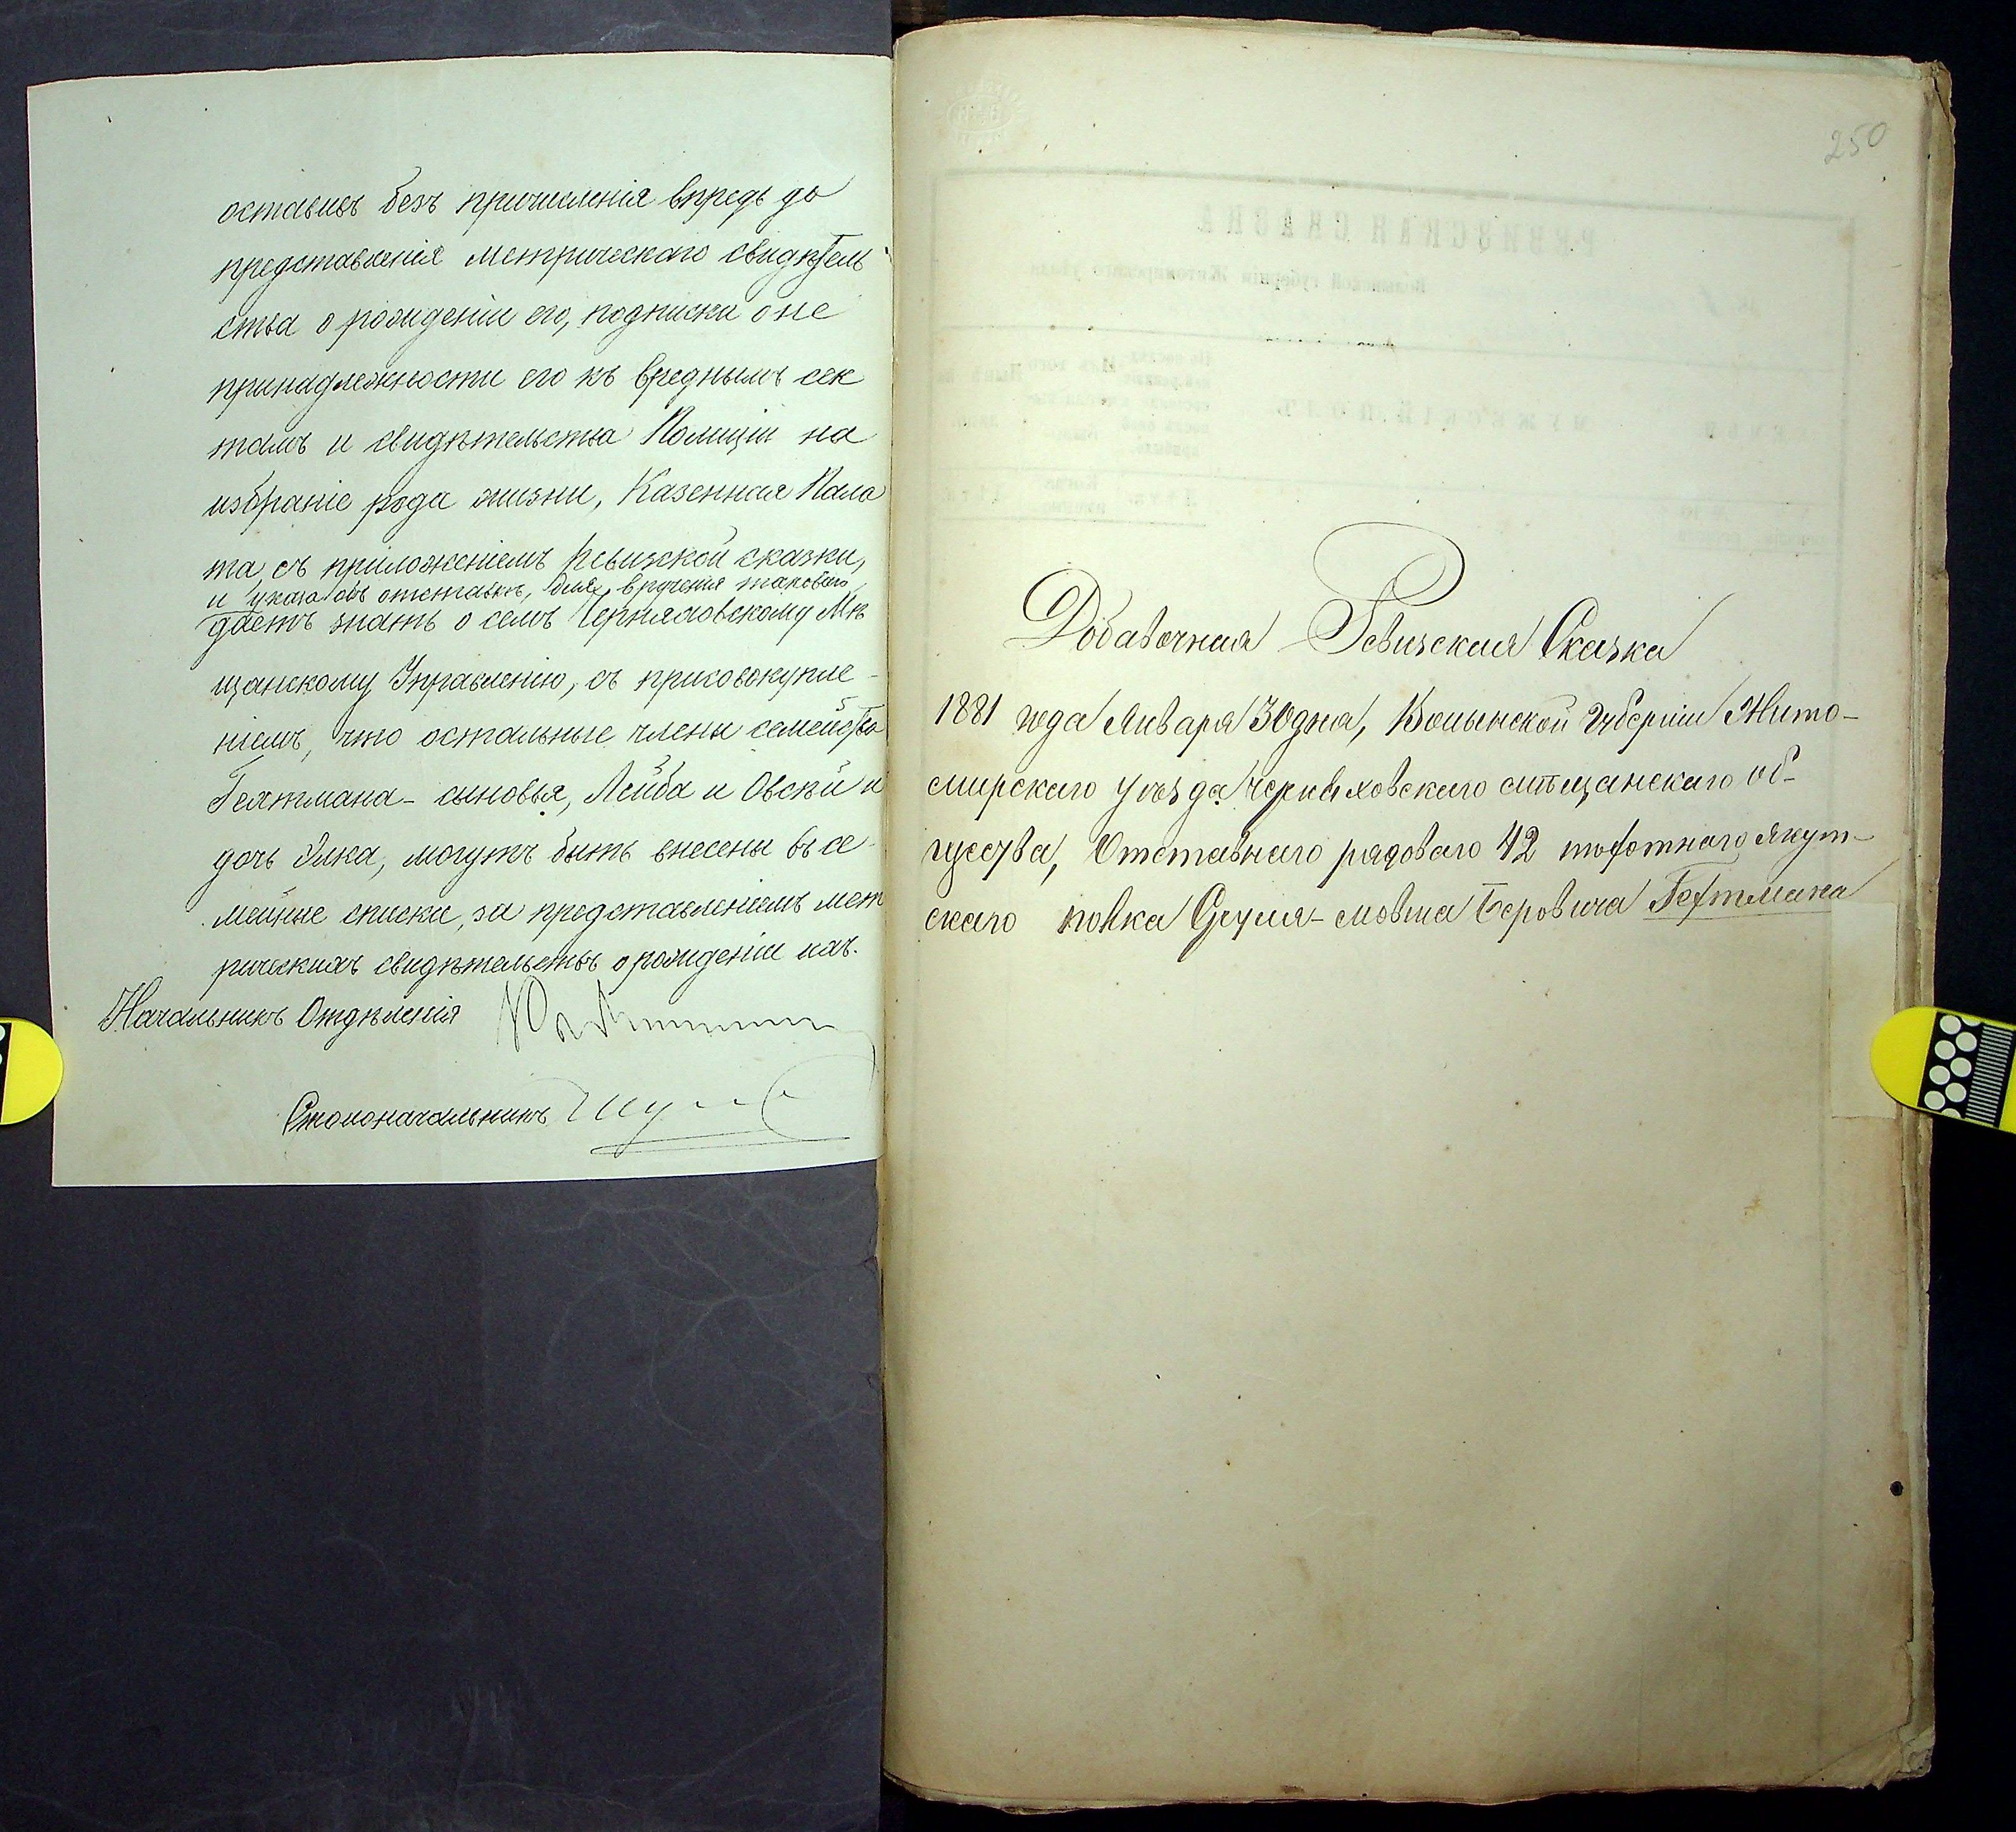 оставивъ безъ причисленія впредь до
представленія метрическаго свидѣтель
ства о рожденіи его, подписки о не
принадлежности его къ вреднымъ сек
тамъ и свидѣтельства Полиціи на
избраніе рода жизни, Казенная Пала
та, съ приложеніемъ Ревизской сказки,
и указа объ отставкѣ, для врученія таковаго
даетъ знать о семъ Черняховскому Мѣ
щанскому Управленію, съ присовокупле-
ніемъ, что остальные члены семейства
Гехтмана - сыновья, Лейба и Овсѣй и
дочь Элка, могутъ быть внесены въ се-
мейные списки, за представленіемъ мет
рическихъ свидѣтельствъ о рожденіи ихъ.
Начальникъ Отдѣленія
Столоначальникъ
250
РЕВИЗСКАЯ СКАЗКА
Волынской губерніи Житомирскаго уѣзда
МУЖЕСКІЙ ПОЛЪ
Добавочная Ревизская Сказка
1881 года Января 30 дня, Волынской Губерніи Жито-
мирскаго уѣзда Черняховскаго мѣщанскаго об-
щества, Отставнаго рядоваго 42 пѣхотнаго Якут-
скаго полка Сруля-мовша Беровича Гехтмана